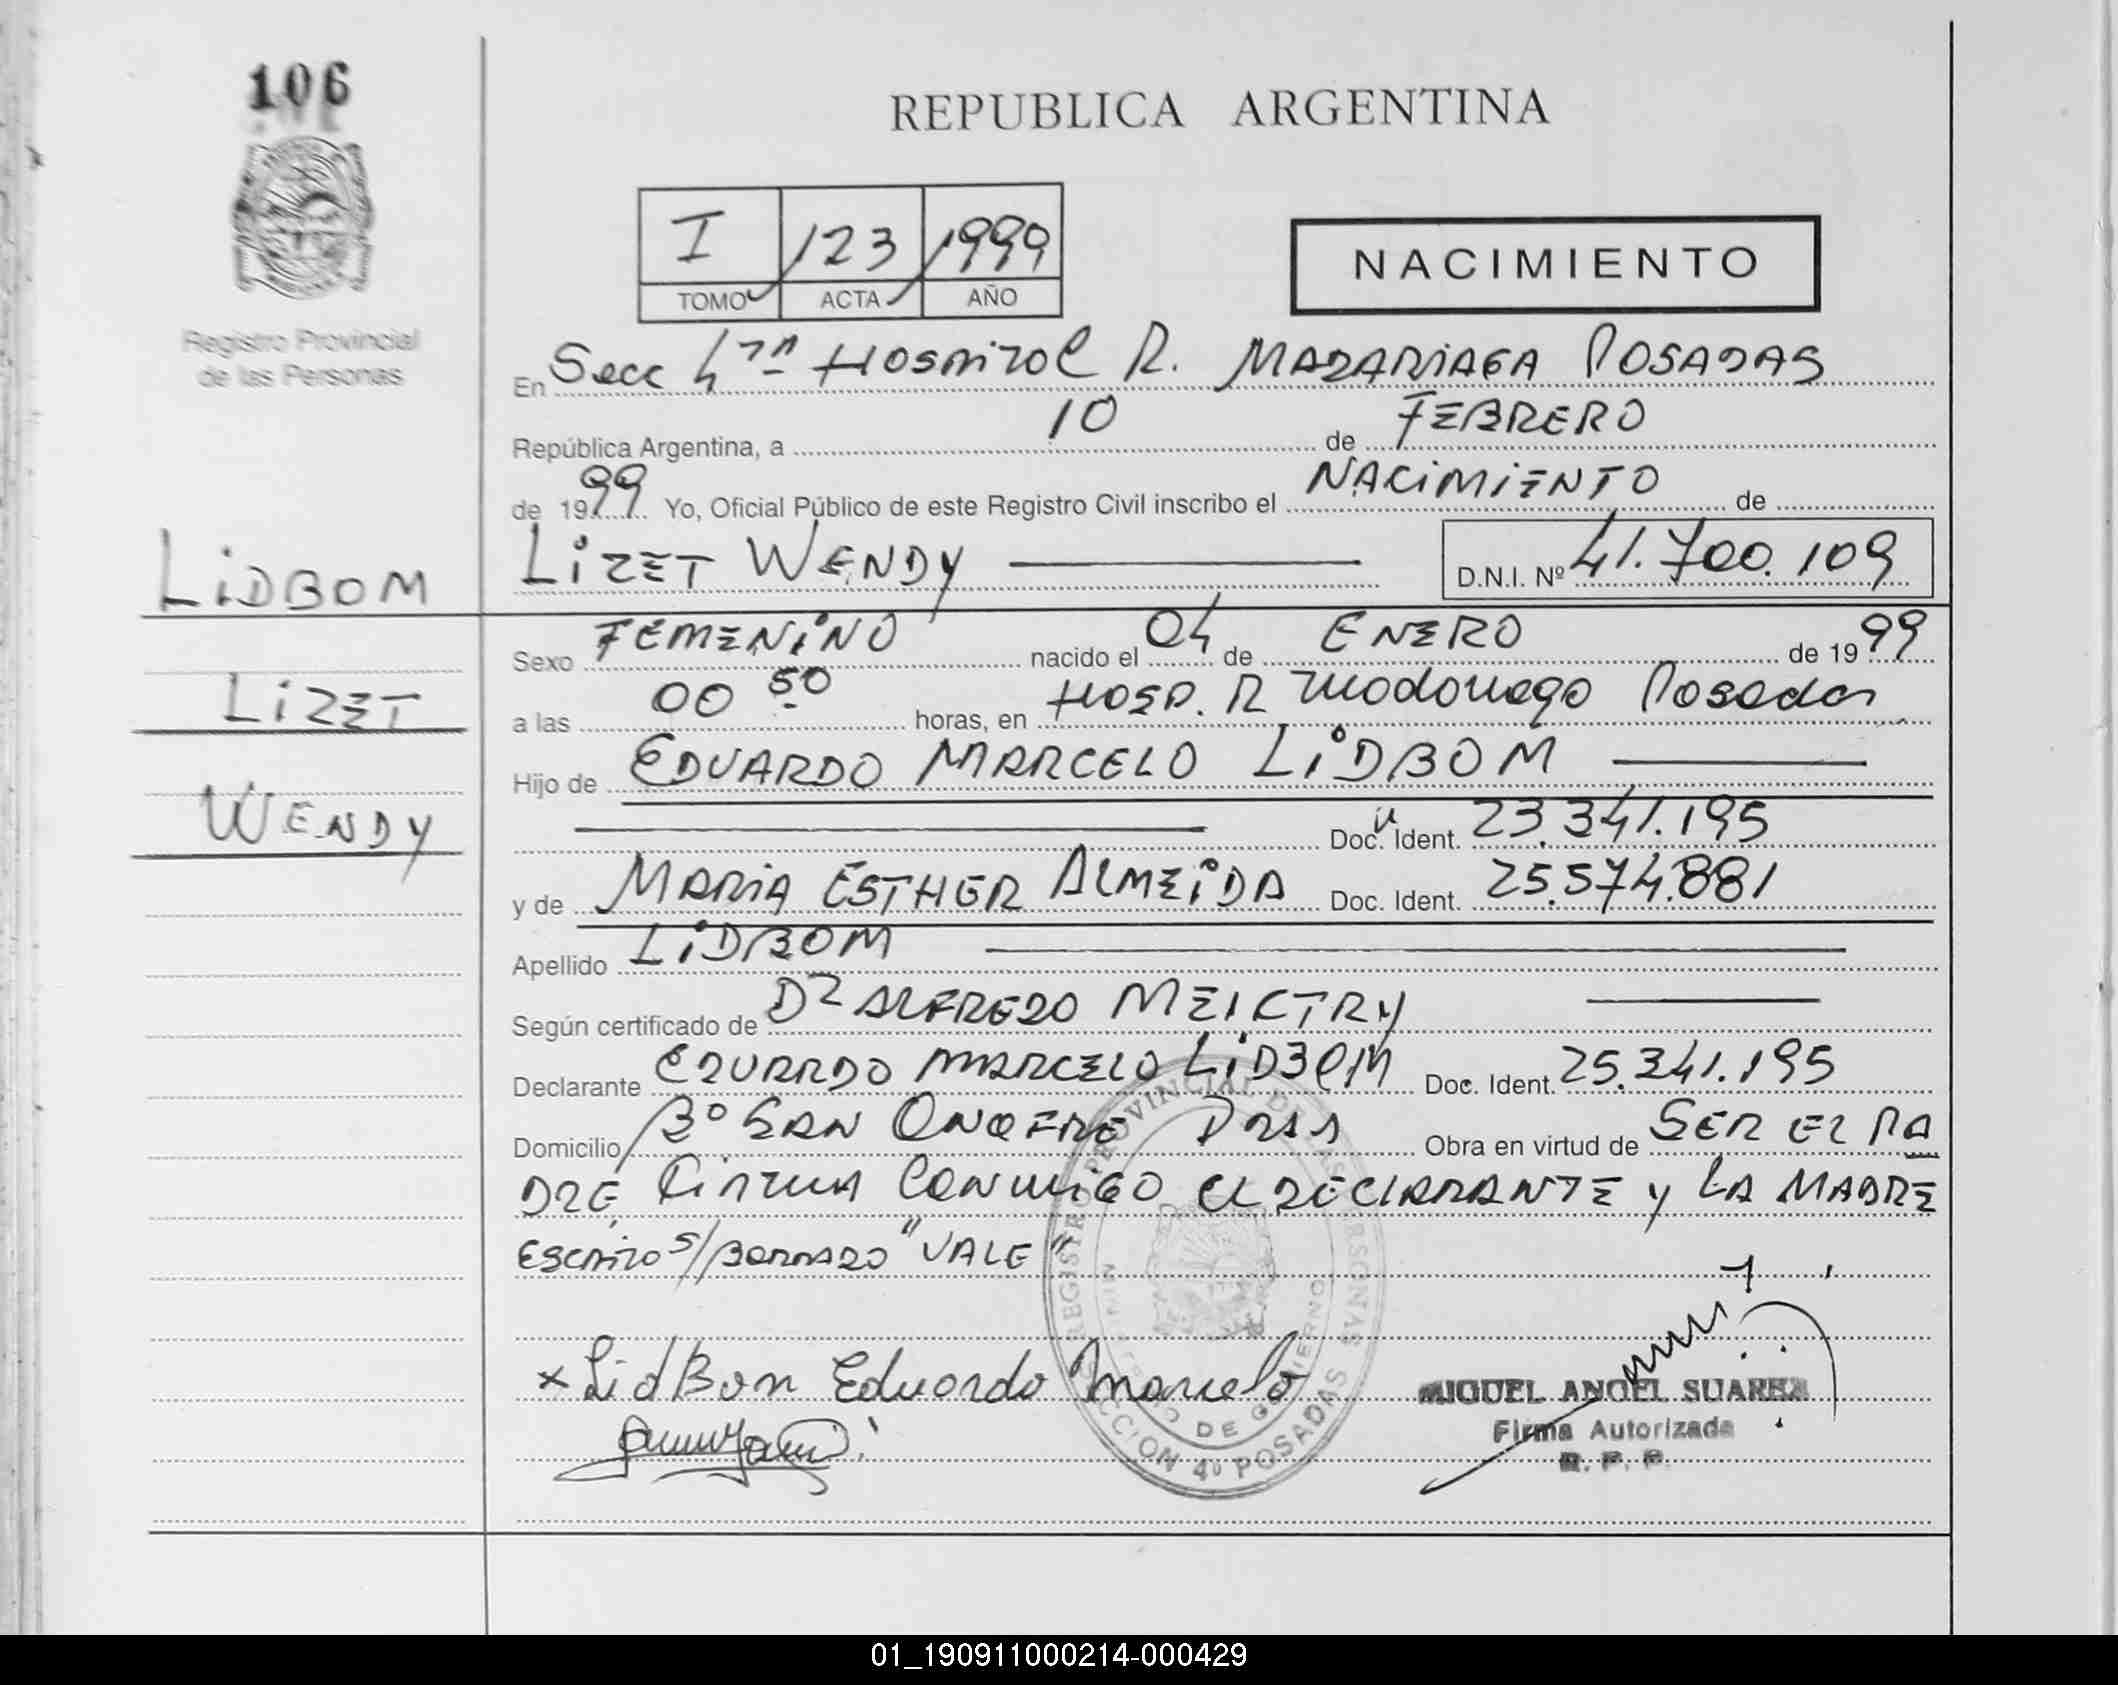 106
REPUBLICA ARGENTINA
I 123 1999
TOMO ACTA AÑO
NACIMIENTO
Registro Provincial
de las Personas
En Secc 4ta HOSPITAL R. MADARIAGA POSADAS
República Argentina, a 10 de FEBRERO
de 1999 Yo, Oficial Público de este Registro Civil inscribo el NACIMIENTO de
LIDBOM
LIZET WENDY D.N.I. Nº 41.700.109
Sexo FEMENINO nacido el 04 de ENERO de 1999
LIZET
a las 00 50 horas, en HOSP. R Madariaga Posadas
Hijo de EDUARDO MARCELO LIDBOM
WENDY
Doc. Ident. 23.341.195
y de MARIA ESTHER ALMEIDA Doc. Ident. 25.574.881
Apellido LIDBOM
Según certificado de Dr ALFREDO
Declarante EDUARDO MARCELO LIDBOM Doc. Ident. 25.341.195
Domicilio Bº SAN ONOFRE PDAS Obra en virtud de SER EL PA
DRE, FIRMA CONMIGO EL DECLARANTE Y LA MADRE
ESCRITO S/BORRADO "VALE"
x LidBom Eduardo Marcelo
REGISTRO PROVINCIAL DE LAS PERSONAS
MINISTERIO DE GOBIERNO
SECCION 4º POSADAS
MIGUEL ANGEL SUAREZ
Firma Autorizada
R. P. P.
01_190911000214-000429